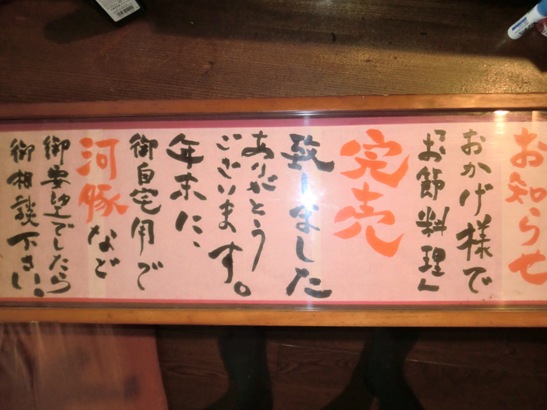 お知らせ
おかげ様で
「お節料理」
完売
致しました
ありがとう
ございます。
年末に、
御自宅用で
河豚など
御要望でしたら
御相談下さい。